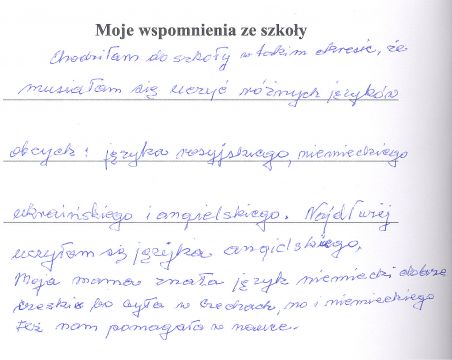 Moje wspomnienia ze szkoły
Chodziłam do szkoły w takim okresie, że
musiałam się uczyć różnych języków
obcych: języka rosyjskiego, niemieckiego
ukraińskiego i angielskiego. Najdłużej
uczyłam się języka angielskiego,
Moja mama znała język niemiecki dobrze
czeski bo była w Czechach, no i niemieckiego
też nam pomagała w nauce.